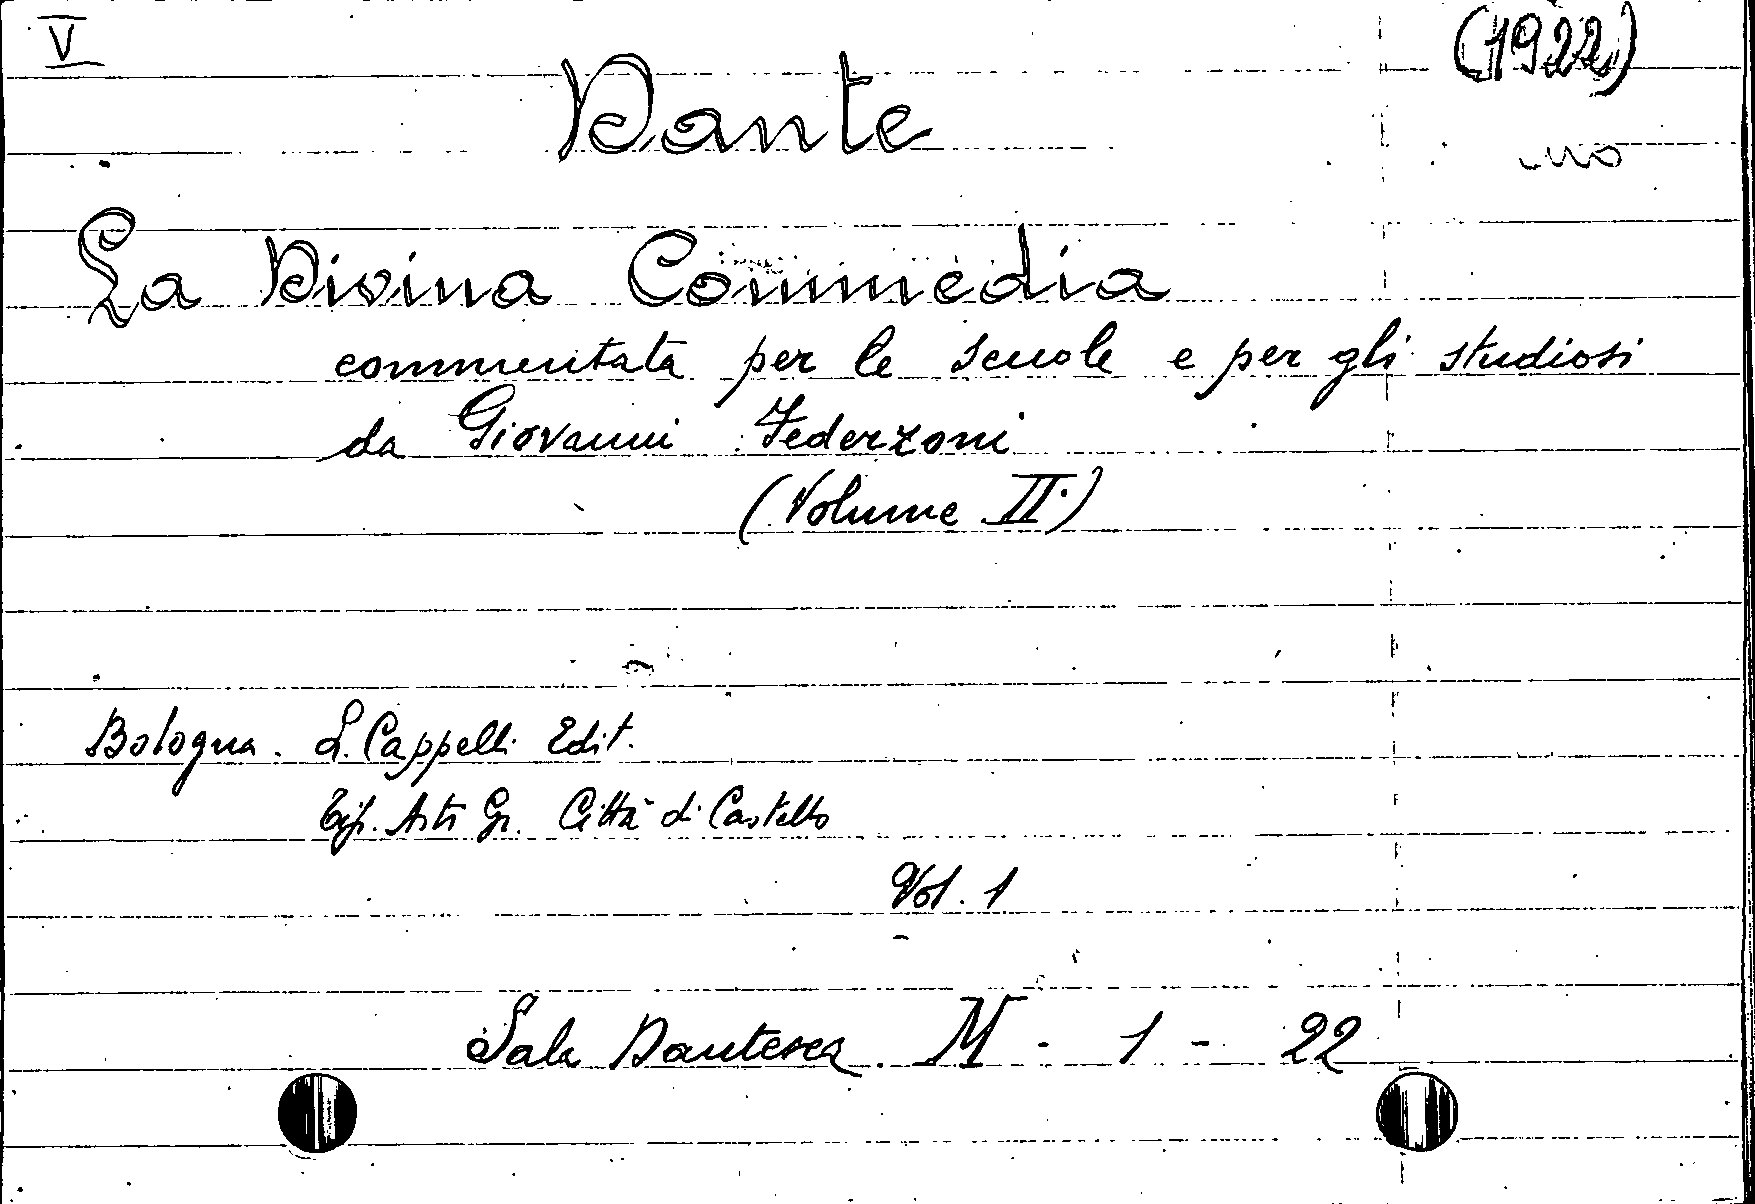 V
(1922)
Dante
La Divina Commedia
commentata per le scuole e per gli studiosi
da Giovanni Federzoni
(Volume II.)
Bologna. L. Cappelli Edit.
Tip. Arti Gr. Città di Castello
Vol. 1
Sala Dantesca M - 1 - 22